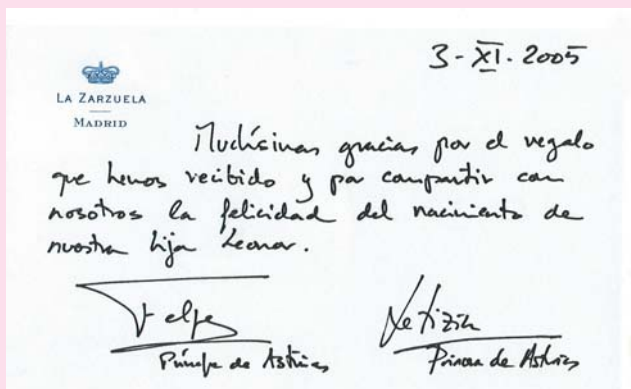 3-XI.2005
LA ZARZUELA
MADRID
Muchísimas gracias por el regalo
que hemos recibido y por compartir con
nosotros la felicidad del nacimiento de
nuestra hija Leonor.
Felipe Letizia
Príncipe de Asturias Princesa de Asturias